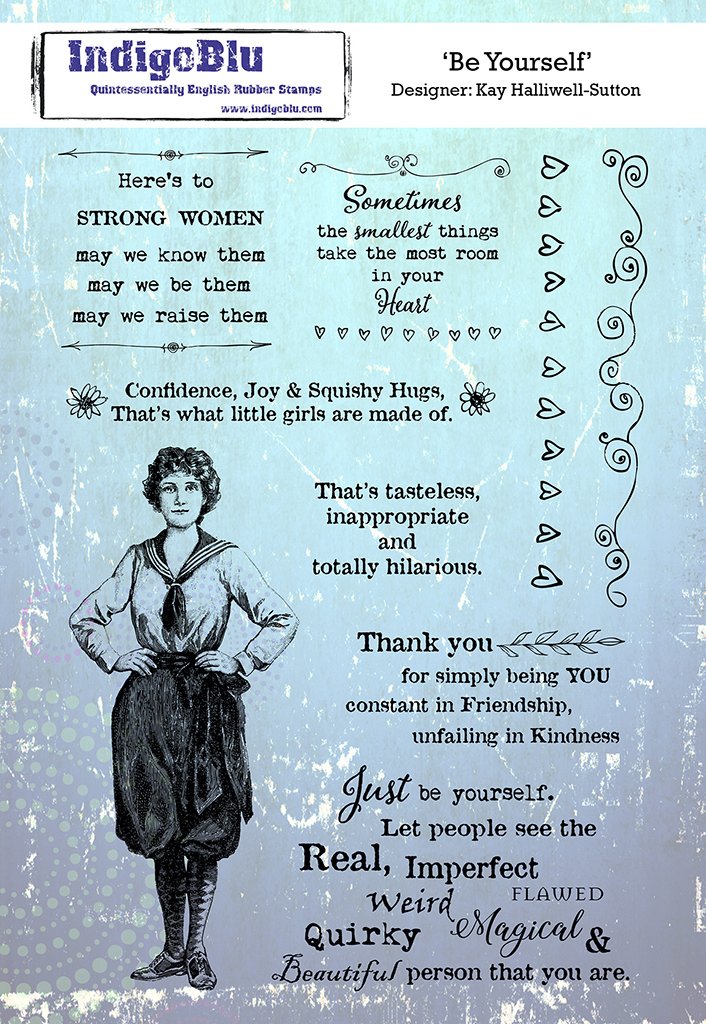 IndigoBlu
Quintessentially English Rubber Stamps
www.indigoblu.com
‘Be Yourself’
Designer: Kay Halliwell-Sutton
Here's to
STRONG WOMEN
may we know them
may we be them
may we raise them
Sometimes
the smallest things
take the most room
in your
Heart
Confidence, Joy & Squishy Hugs,
That's what little girls are made of.
That's tasteless,
inappropriate
and
totally hilarious.
Thank you
for simply being YOU
constant in Friendship,
unfailing in Kindness
Just be yourself.
Let people see the
Real, Imperfect
Weird FLAWED
Quirky Magical &
Beautiful person that you are.